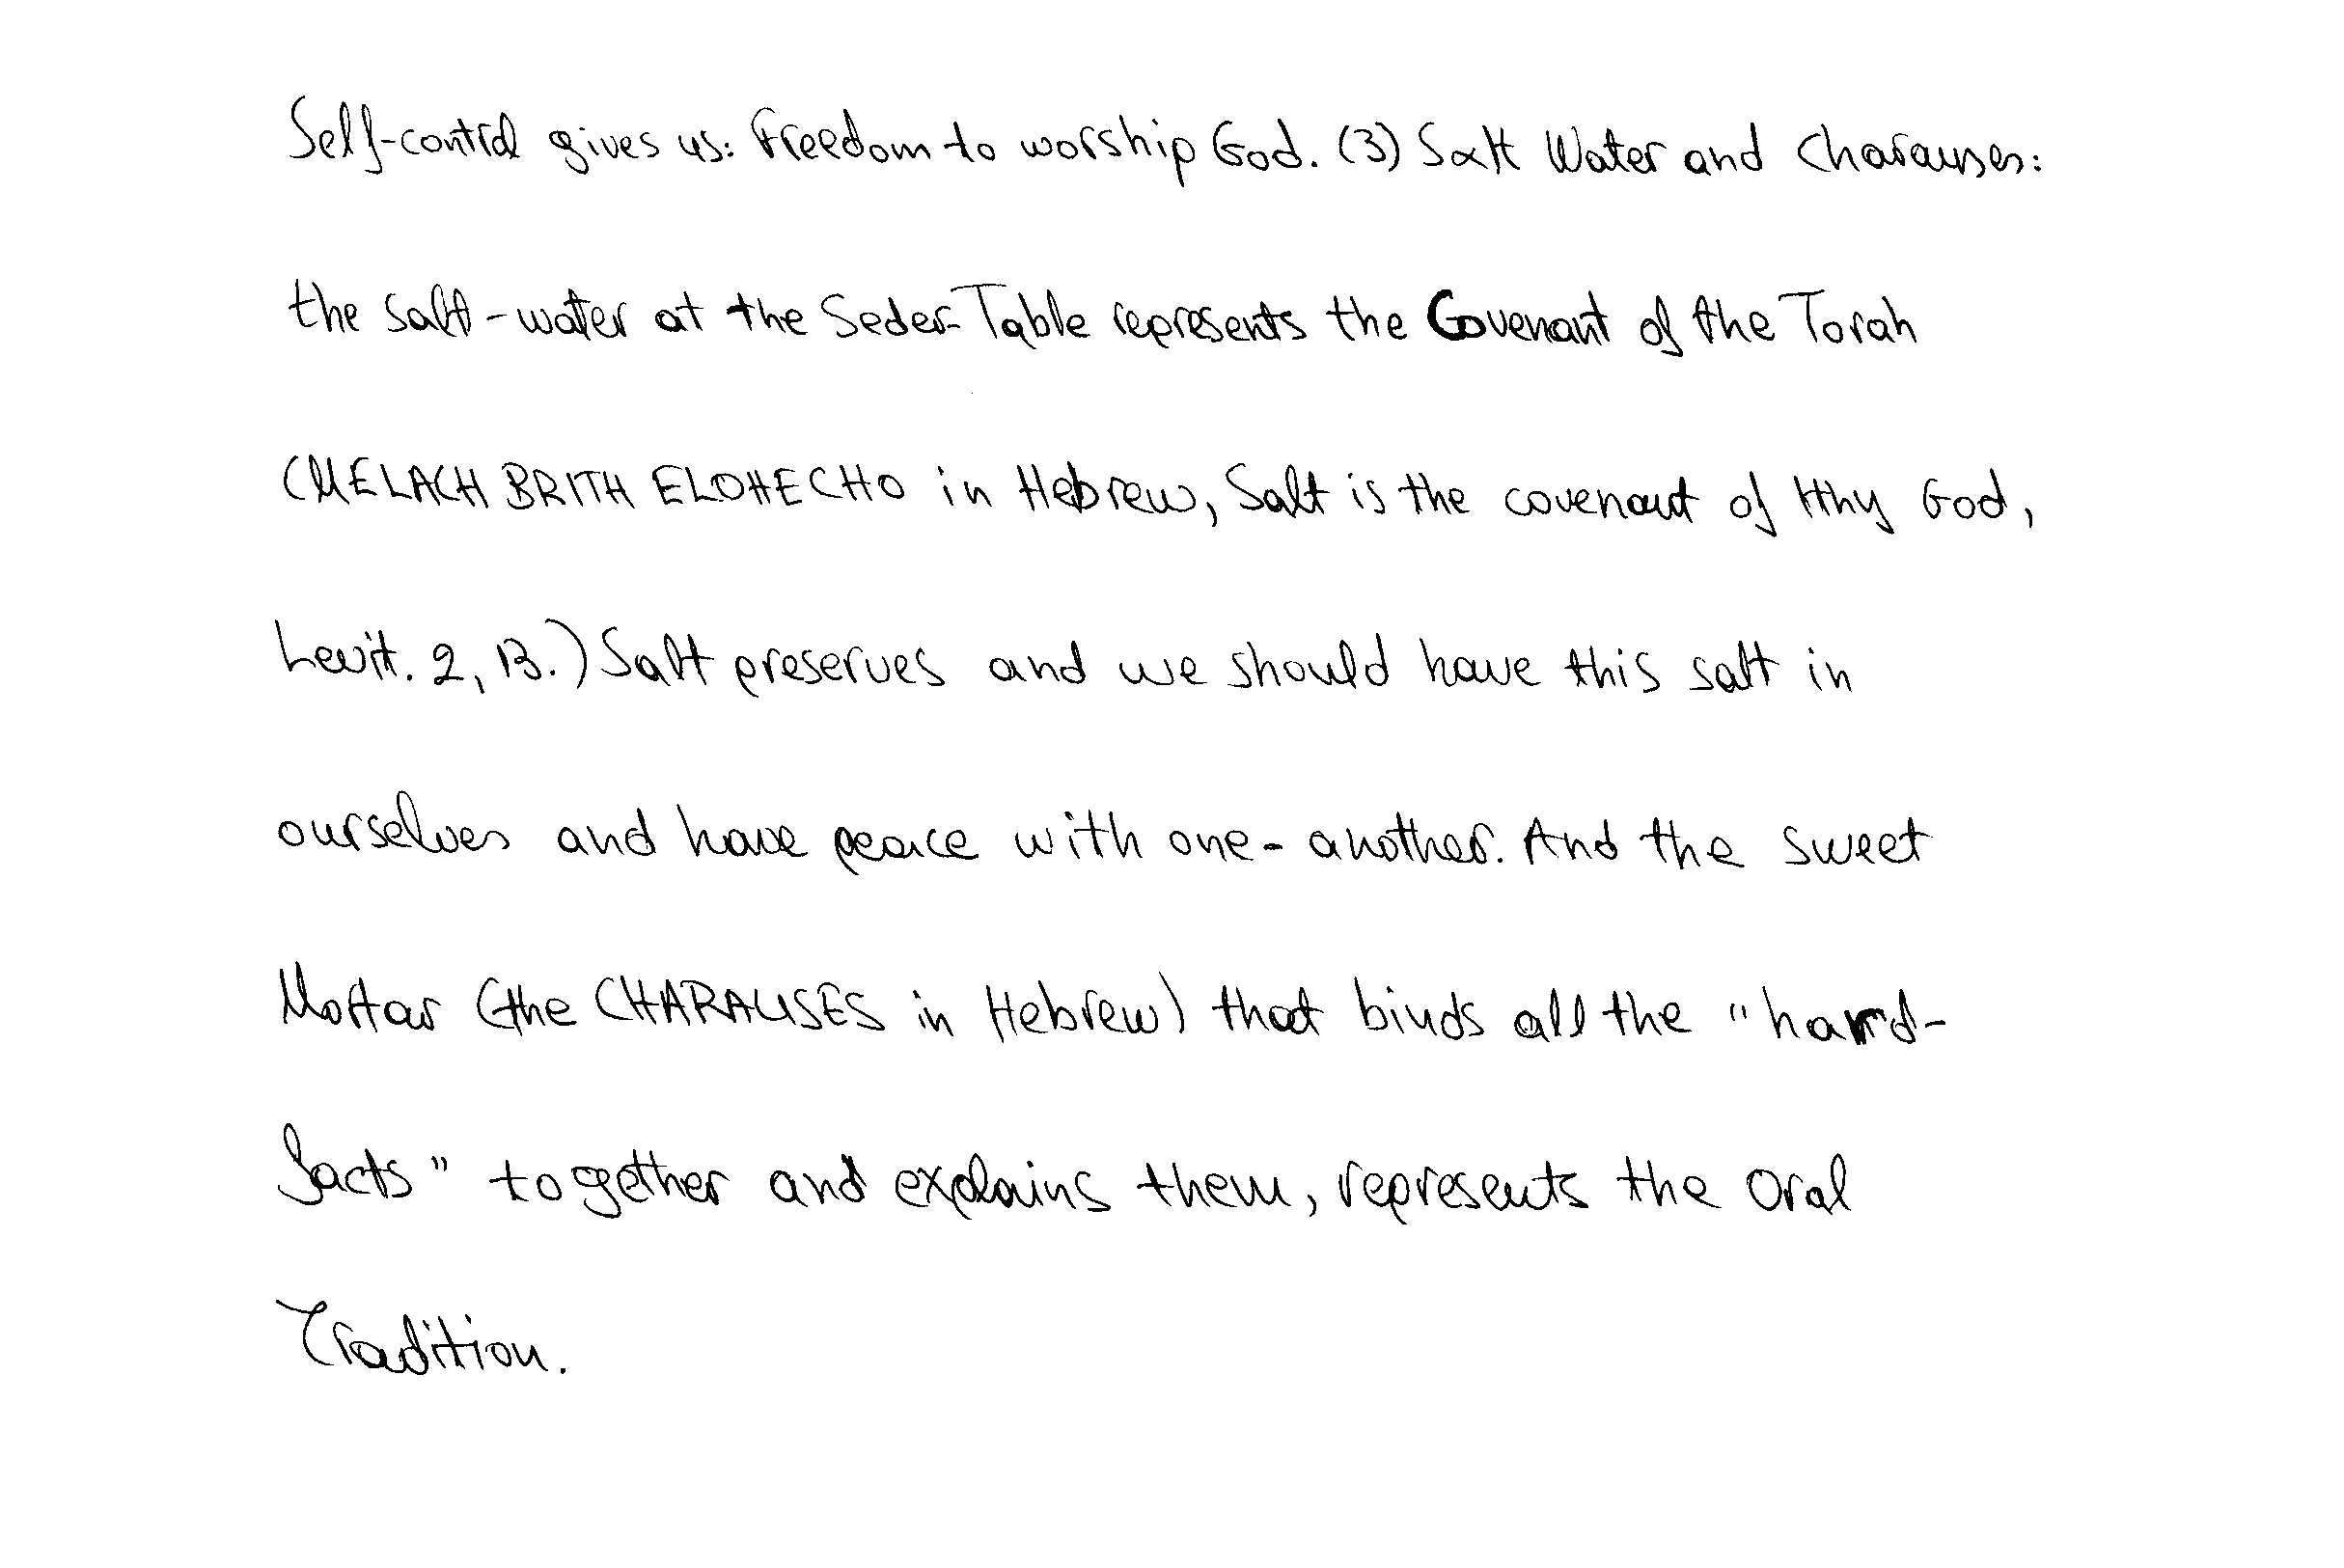 Self-control gives us: Freedom to worship God. (3) Salt Water and Charauses:
the salt-water at the Seder-Table represents the Covenant of the Torah
(MELACH BRITH ELOHECHO in Hebrew, Salt is the covenant of thy God,
Levit. 2, 13.) Salt preserves and we should have this salt in
ourselves and have peace with one-another. And the sweet
Mortar (the CHARAUSES in Hebrew) that binds all the "hard-
facts" together and explains them, represents the Oral
Tradition.